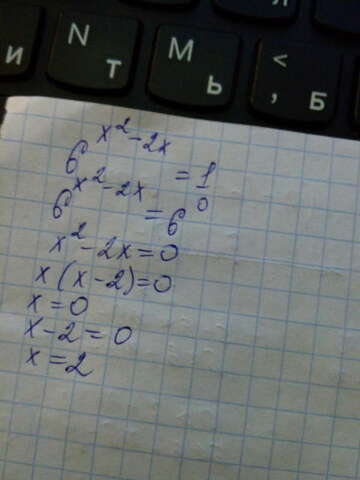 и N т М ь < , Б
6^{x^2-2x} = 1
6^{x^2-2x} = 6^0
x^2-2x=0
x(x-2)=0
x=0
x-2=0
x=2